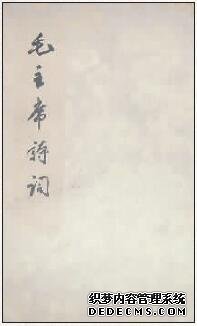 毛主席詩詞
织梦内容管理系统
DEDECMS.COM